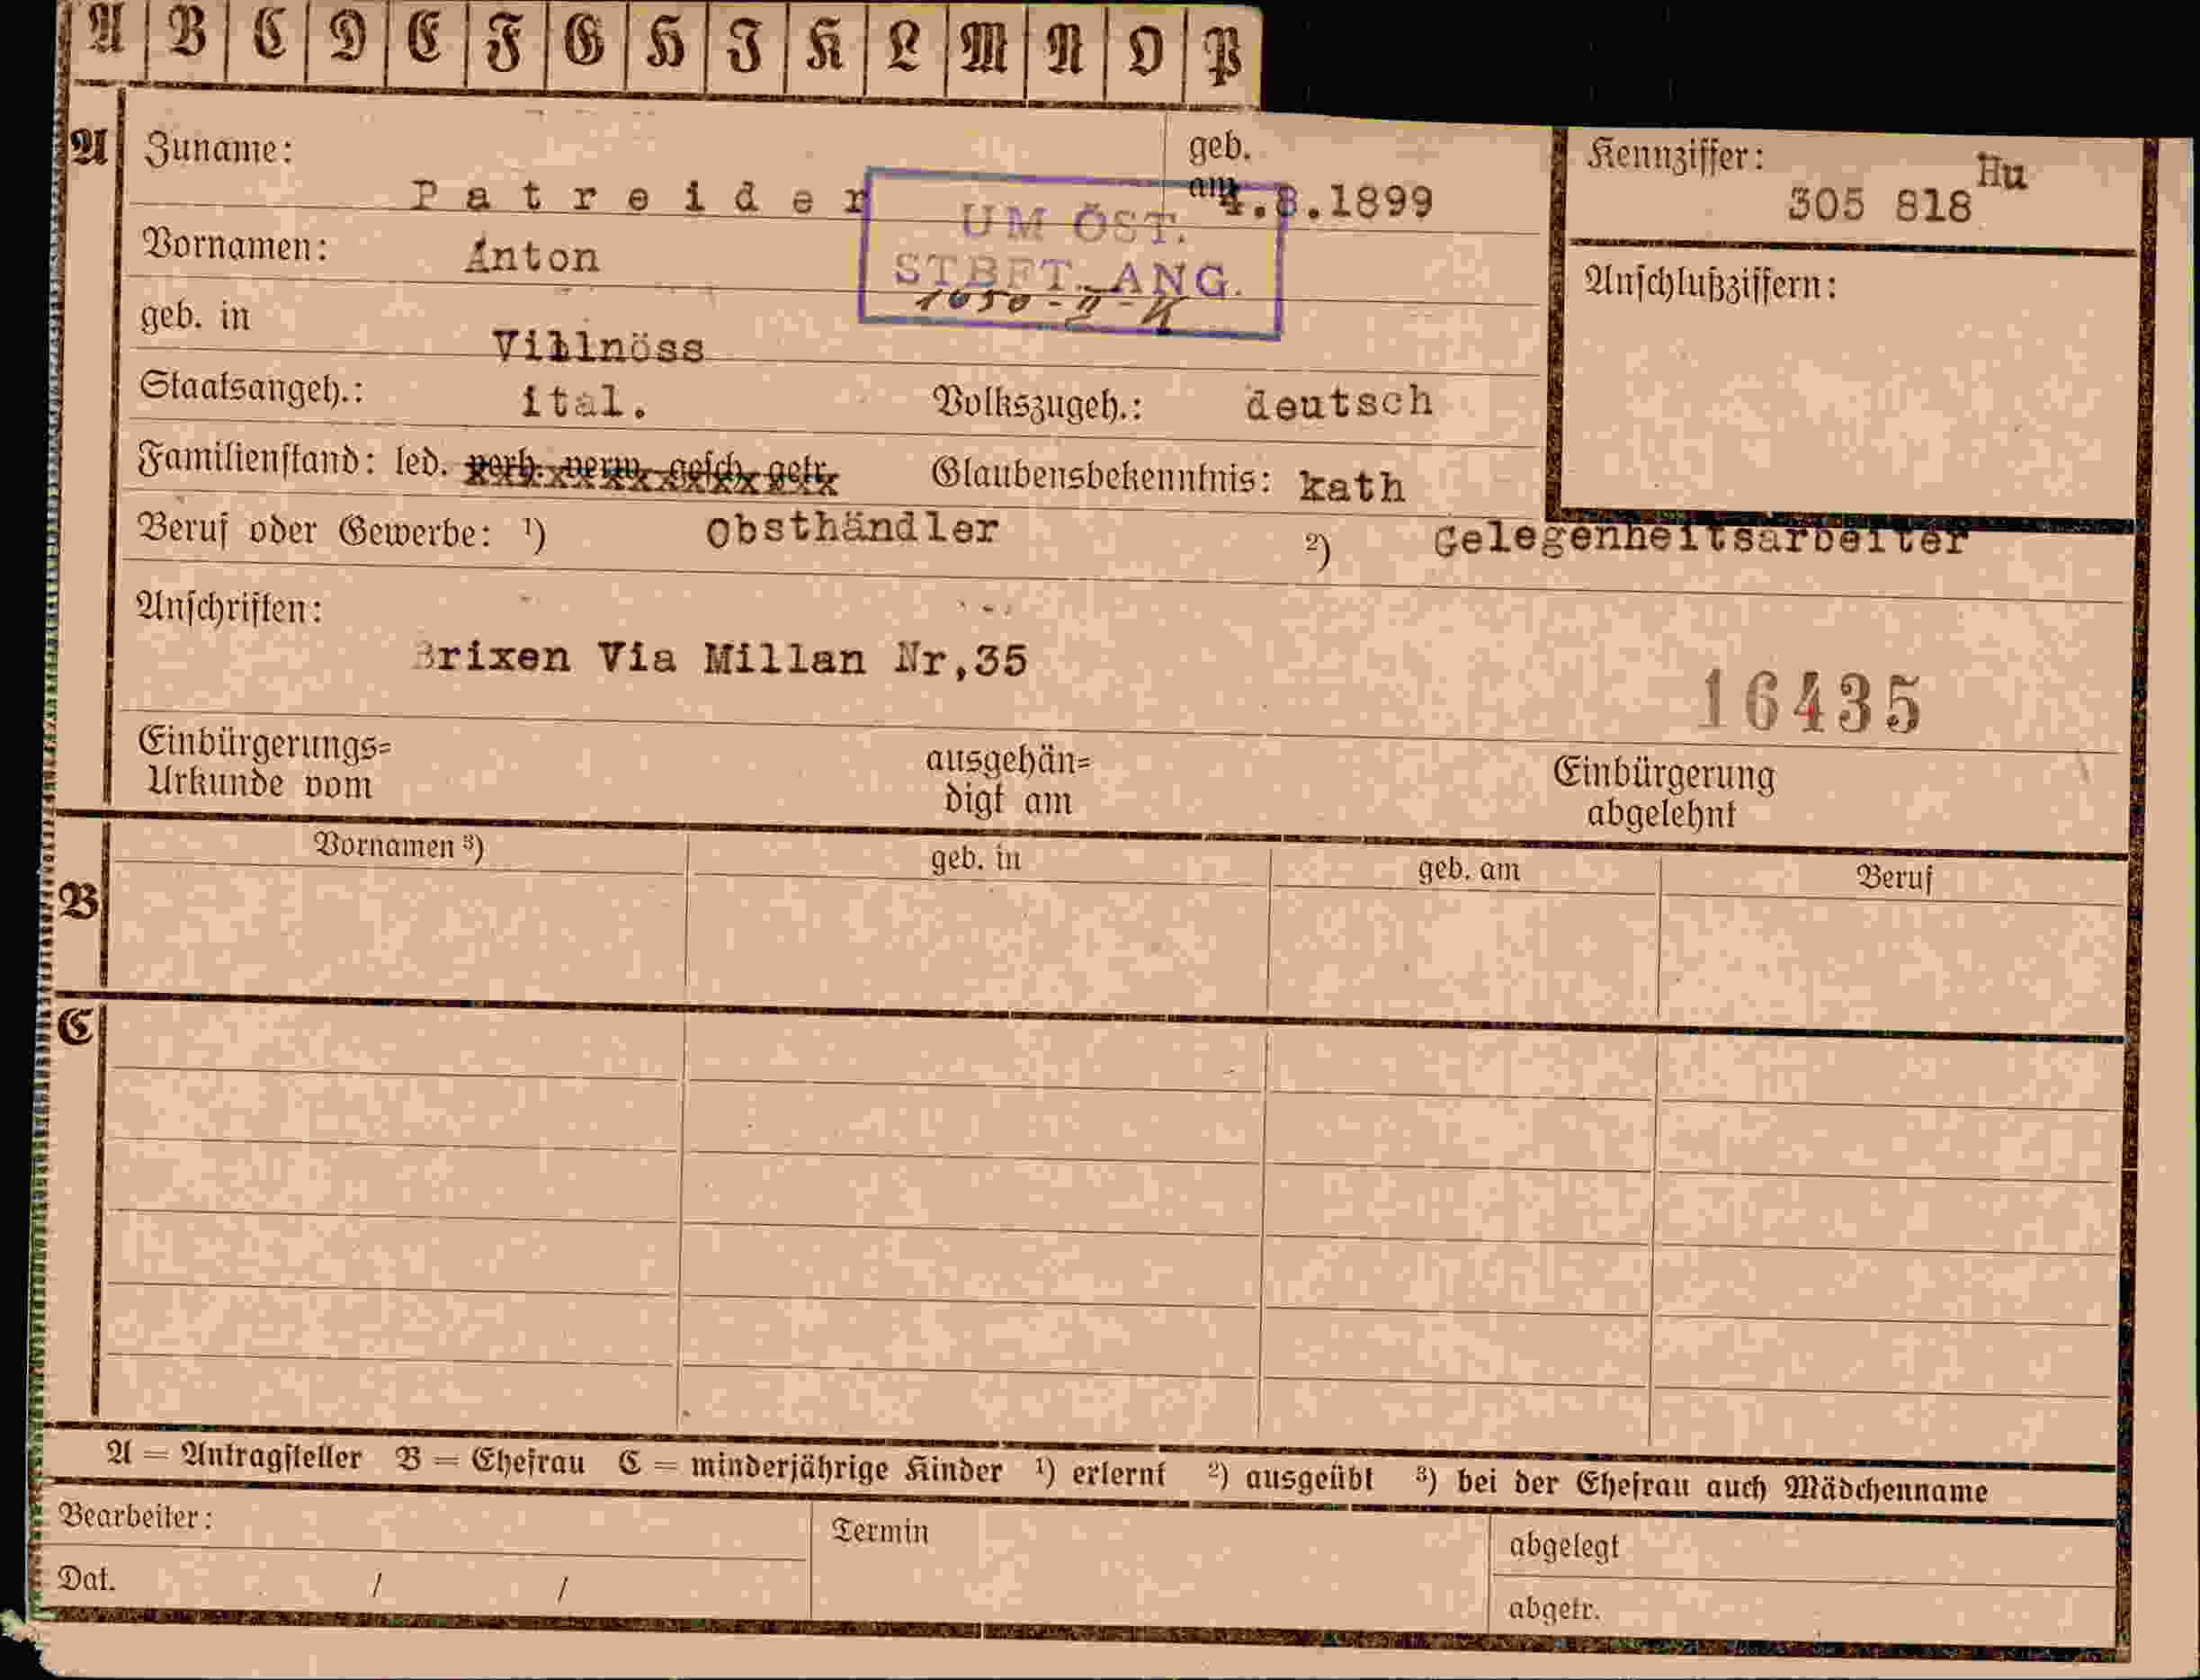 A B C D E F G H I K L M N O P
A
Zuname: Patreider
geb. am 4.8.1899
Kennziffer: 305 818 Hu
UM ÖST.
STBFT. ANG.
Vornamen: Anton
Anschlußziffern:
geb. in Villnöss
Staatsangeh.: ital. Volkszugeh.: deutsch
Familienstand: led. verh. verw. gesch. getr. Glaubensbekenntnis: kath
Beruf oder Gewerbe: ¹) Obsthändler ²) Gelegenheitsarbeiter
Anschriften:
Brixen Via Millan Nr,35
16435
Einbürgerungs= ausgehän= Einbürgerung
Urkunde vom digt am abgelehnt
B
Vornamen ³) geb. in geb. am Beruf
C
A = Antragsteller B = Ehefrau C = minderjährige Kinder ¹) erlernt ²) ausgeübt ³) bei der Ehefrau auch Mädchenname
Bearbeiter: Termin abgelegt
Dat. / / abgetr.